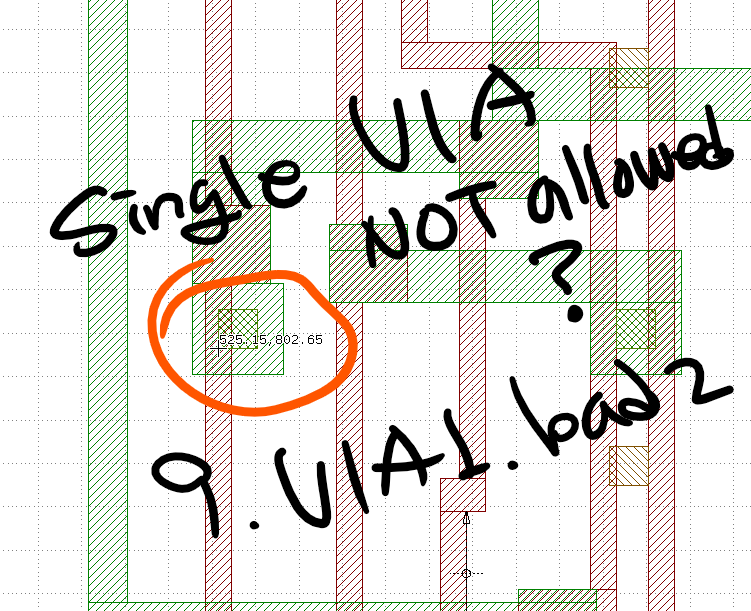 Single VIA
NOT allowed
?
525.15,802.65
9.VIA1.bad2